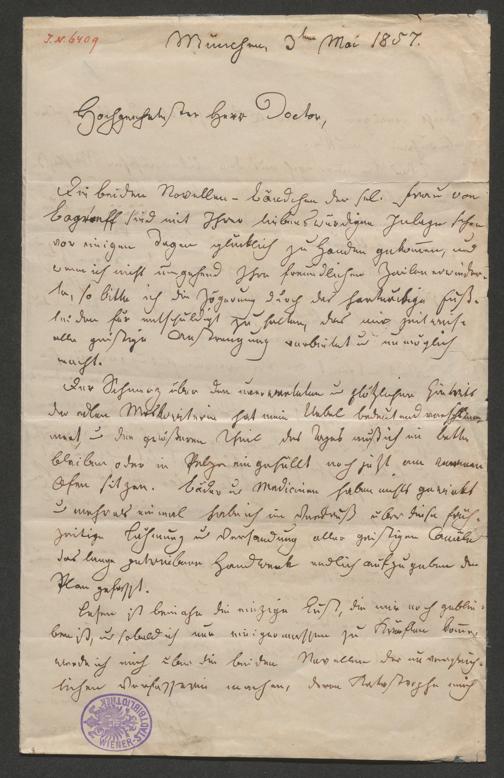 I.N. 6409
München, 3ten Mai 1857.
Hochgeehrtester Herr Doctor,
Die beiden Novellen-Bändchen der sel. Frau von
Bagréeff sind mit Ihrer liebenswürdigen Zulage schon
vor einigen Tagen glücklich zu Handen gekommen, und
wenn ich nicht umgehend Ihre freundlichen Zeilen erwider-
te, so bitte ich die Zögerung durch das hartnäckige Fuß-
leiden für entschuldigt zu halten, das mir zeitweise
alle geistige Anstrengung verbietet u unmöglich
macht.
Der Schmerz über den unerwarteten u plötzlichen Hintritt
der edlen Moskoviterin hat mein Uebel bedeutend verschlim-
mert u den größeren Theil des Tages muß ich im Bette
bleiben oder in Pelze eingehüllt noch jetzt am warmen
Ofen sitzen. Bäder u Medicinen haben nichts gewirkt
u mehr als einmal habe ich im Verdruß über diese früh-
zeitige Lähmung u Versandung aller geistigen Canäle
das lange getriebene Handwerk endlich aufzugeben den
Plan gefaßt.
Lesen ist beinahe die einzige Lust, die mir noch geblie-
ben ist, u sobald ich nur einigermassen zu Kräften komme,
werde ich mich über die beiden Novellen der unvergleich-
lichen Verfasserin machen, deren Katastrophe mich
WIENER STADTBIBLIOTHEK